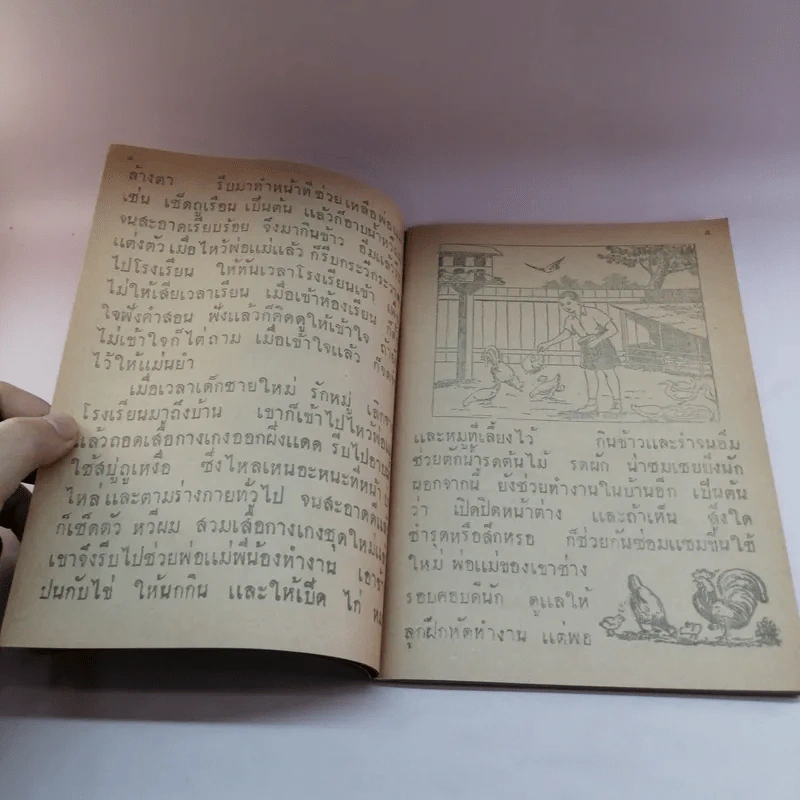 ล้างตา รีบมาทำหน้าที่ช่วยเหลือพ่อแม่
เช่น เช็ดถูเรือน เป็นต้น แล้วก็อาบน้ำ
จนสะอาดเรียบร้อย จึงมากินข้าว อิ่มแล้ว
แต่งตัว เมื่อไหว้พ่อแม่แล้ว ก็รีบกระวีกระวาด
ไปโรงเรียน ให้ทันเวลาโรงเรียนเข้า
ไม่ให้เสียเวลาเรียน เมื่อเข้าห้องเรียน
ใจฟังคำสอน ฟังแล้วก็คิดดูให้เข้าใจ
ไม่เข้าใจก็ไต่ถาม เมื่อเข้าใจแล้ว
ไว้ให้แม่นยำ
เมื่อเวลาเด็กชายใหม่ รักหมู่
โรงเรียนมาถึงบ้าน เขาก็เข้าไปไหว้พ่อแม่
แล้วถอดเสื้อกางเกงออกผึ่งแดด รีบไป
ใช้สบู่ถูเหงื่อ ซึ่งไหลเหนอะหนะที่หน้า
ไหล่ และตามร่างกายทั่วไป จนสะอาดดีแล้ว
ก็เช็ดตัว หวีผม สวมเสื้อกางเกงชุดใหม่
เขาจึงรีบไปช่วยพ่อแม่พี่น้องทำงาน
ปนกับไข่ ให้นกกิน และให้เป็ด ไก่
และหมูที่เลี้ยงไว้ กินข้าวและรำจนอิ่ม
ช่วยตักน้ำรดต้นไม้ รดผัก น่าชมเชยยิ่งนัก
นอกจากนี้ ยังช่วยทำงานในบ้านอีก เป็นต้น
ว่า เปิดปิดหน้าต่าง และถ้าเห็น สิ่งใด
ชำรุดหรือสึกหรอ ก็ช่วยกันซ่อมแซมขึ้นใช้
ใหม่ พ่อแม่ของเขาช่าง
รอบคอบดีนัก ดูแลให้
ลูกฝึกหัดทำงาน แต่พอ